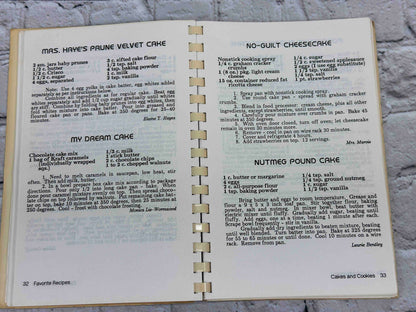 MRS. HAYE'S PRUNE VELVET CAKE
3 sm. jars baby prunes
1/2 c. butter
1/2 c. Crisco
1 1/2 c. sugar
4 eggs, separated
3 c. sifted cake flour
1/2 tsp. salt
1 tsp. baking powder
1 c. milk
3 tsp. vanilla
Note: Use 4 egg yolk in cake batter, egg whites added
separately as per instructions below.
Elaine T. Hayes
MY DREAM CAKE
Chocolate cake mix
1 bag of Kraft caramels
(individually wrapped
ags.)
1/2 c. milk
1 stick butter
2 c. chocolate chips
1 to 3 c. chopped walnuts
1. Need to melt caramels in saucepan, low heat, stir
often. Then add milk, butter.
2. In a bowl prepare box cake mix according to package
directions. Pour only 1/2 into long cake pan - bake. When
done pour caramel mixture evenly on top. Then spread choco-
late chips on top followed by walnut. Put remaining cake batter
on top, bake 10 minutes at 350 degrees, then 25 minutes at
250 degrees. Cool - frost with chocolate frosting.
32 Favorite Recipes
NO-GUILT CHEESECAKE
Nonstick cooking spray
1/4 c. graham cracker
crumbs
1 (8 oz.) pkg. light cream
cheese
15 oz. container reduced fat
ricotta cheese
1/4 c. sugar
1/2 c. sweetened applesauce
2 eggs (1 use egg substitute)
1 1/2 tsp. vanilla
1/4 tsp. salt
1 pt. strawberries
1. Spray pan with nonstick cooking spray.
2. Use round cake pan - spread with graham cracker
crumbs.
3. Blend in food processor. cream cheese, plus all other
ingredients, except strawberries, until smooth.
4. Carefully pour mixture over crumbs in pan. Bake 45
minutes at 350 degrees.
5. With oven door closed, turn off oven; let cheesecake
remain in oven 30 minutes more.
6. Remove & cool in pan on wire rack 30 minutes.
7. Cover and refrigerate 4 hours.
8. Add strawberries on top. 12 servings.
Mrs. Marcia
NUTMEG POUND CAKE
1 c. butter or margarine
5 eggs
2 c. all-purpose flour
1 tsp. baking powder
1/4 tsp. salt
1/4 tsp. ground nutmeg
1 c. sugar
1 1/2 tsp. vanilla
Bring butter and eggs to room temperature. Grease and
flour a 9 x 5 x 3 inch loaf pan. Stir together flour, baking
powder, salt and nutmeg. In mixer bowl, beat butter with
electric mixer until fluffy. Gradually add sugar, beating until
fluffy. Add eggs, one at a time, beating 1 minute after each.
Scrape bowl frequently - stir in vanilla.
Gradually add dry ingredients to beaten mixture, beating
until well blended. Turn batter into pan. Bake at 325 degrees
for 55 to 65 minutes or until done. Cool 10 minutes on a wire
rack. Remove from pan.
Laurie Bentley
Cakes and Cookies 33